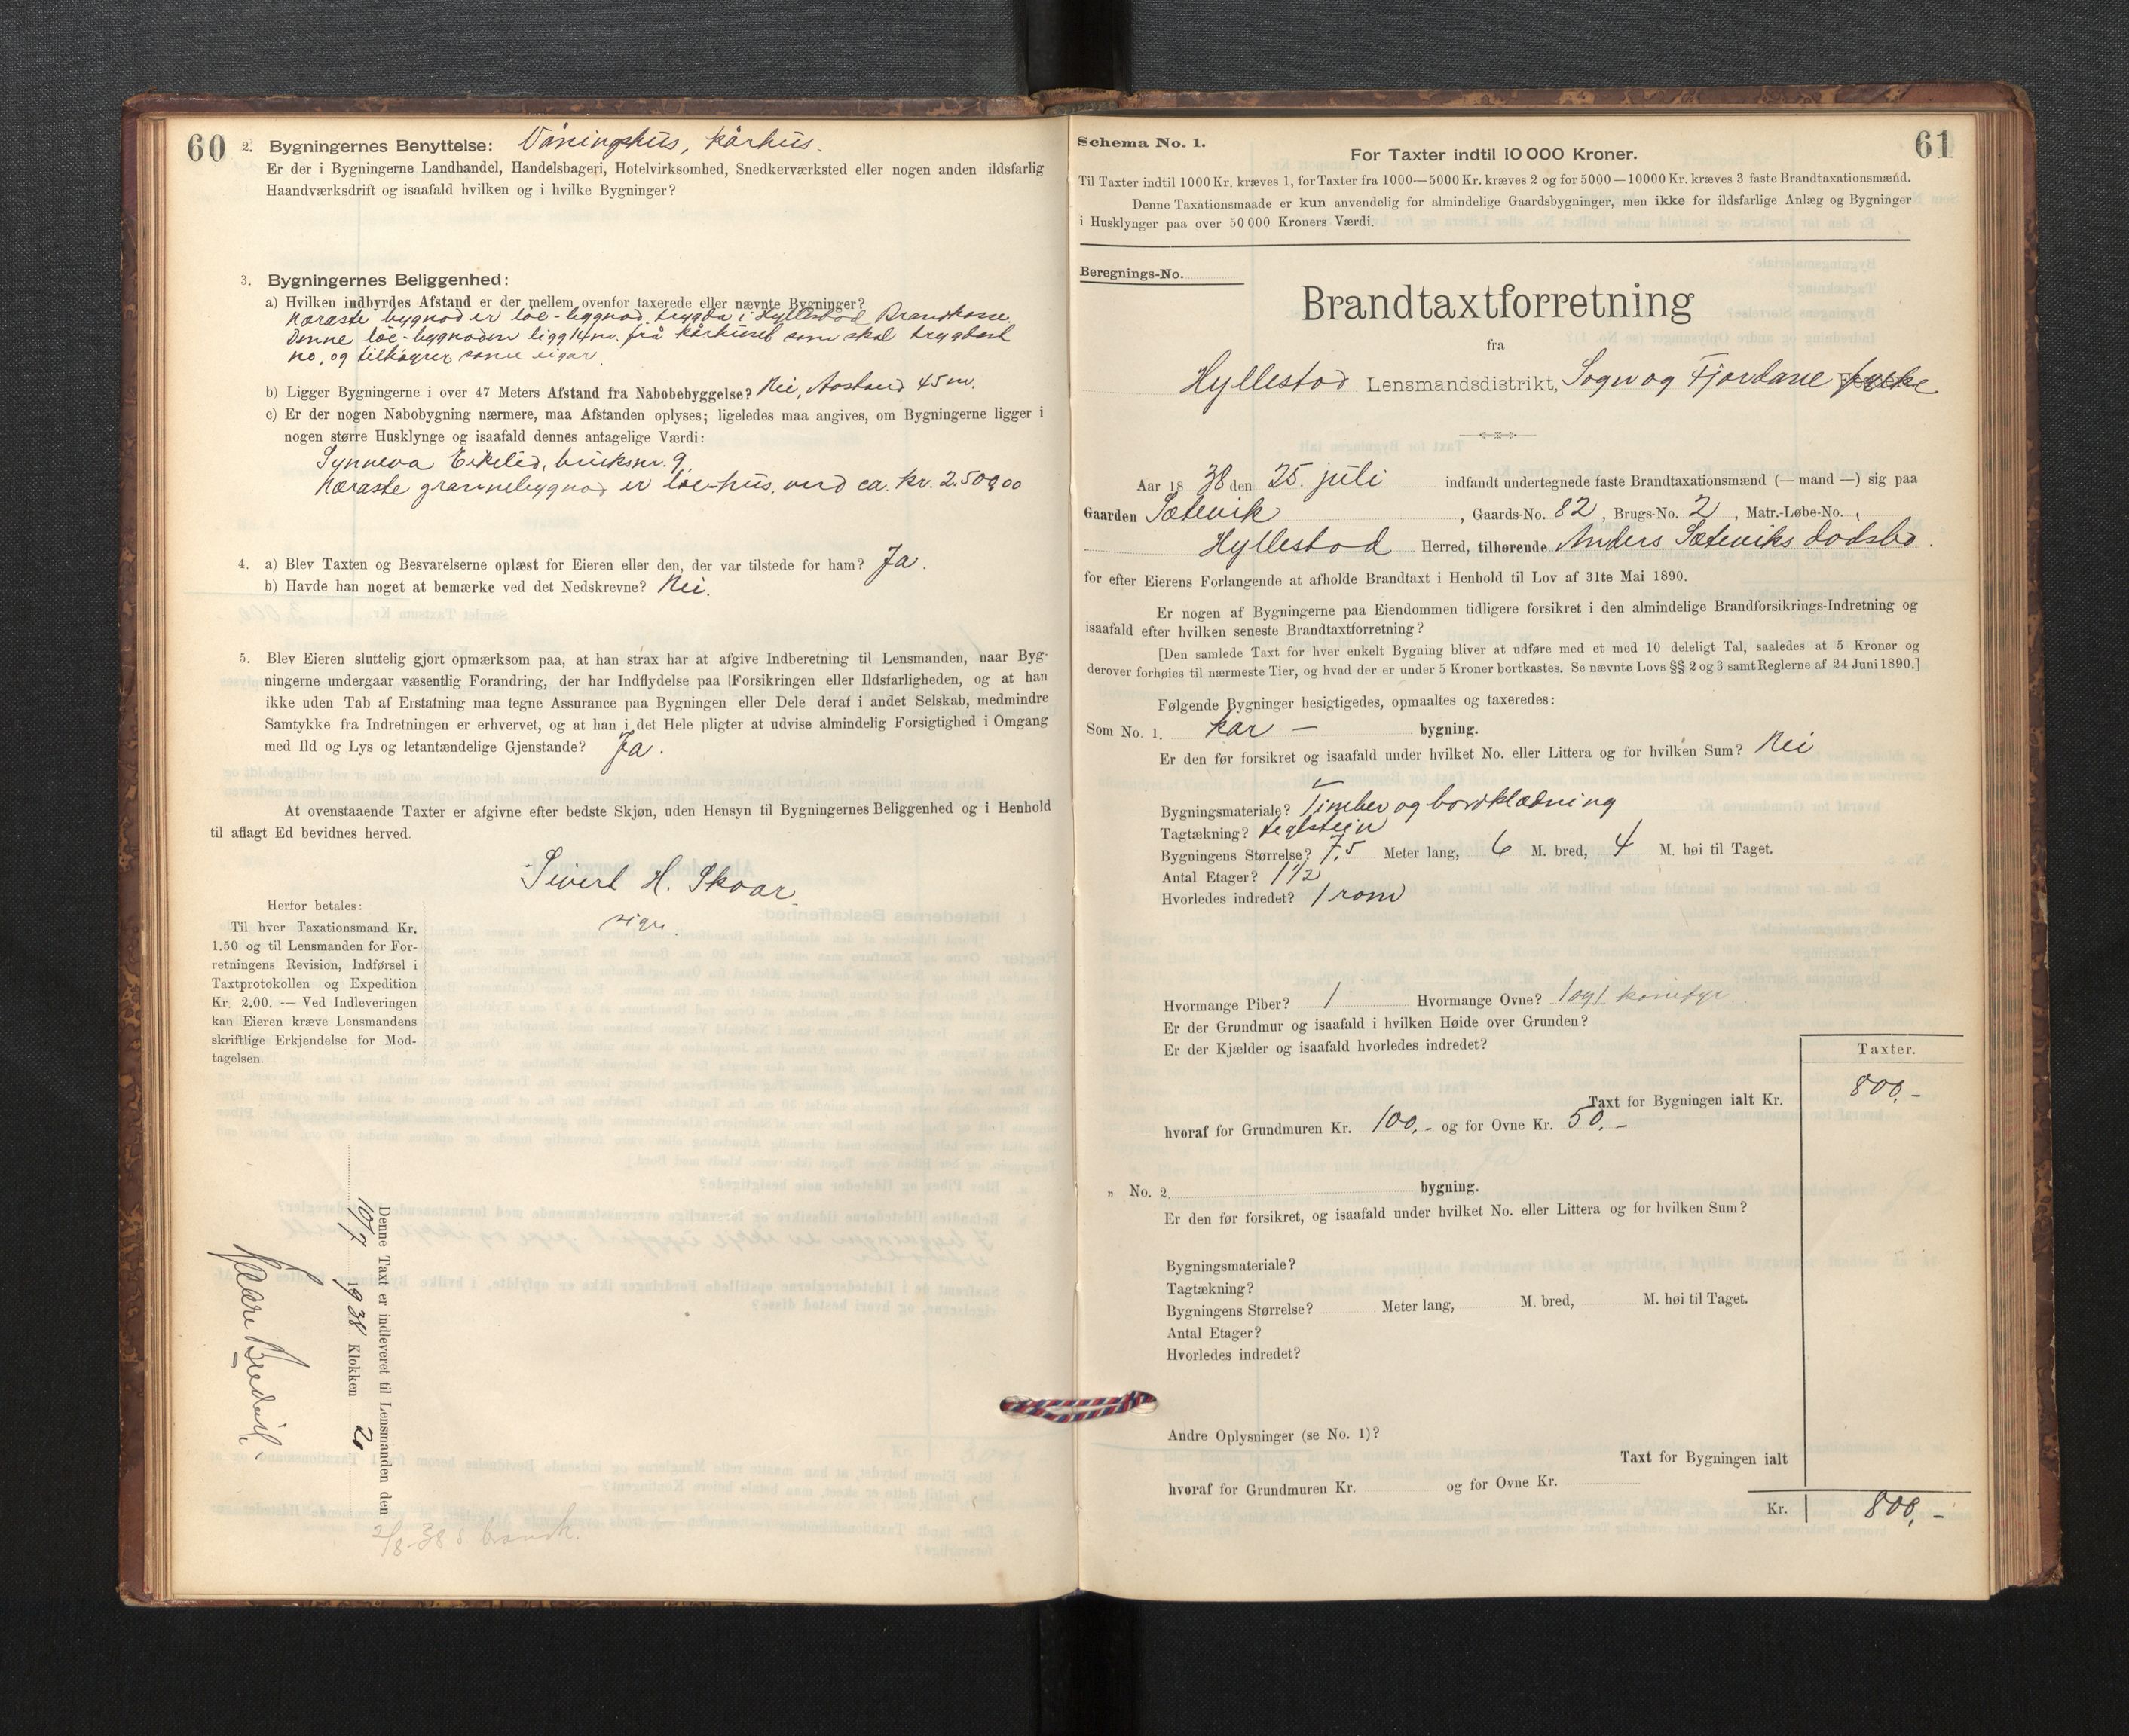 60
2. Bygningernes Benyttelse: Våningshus, kårhus.
Er der i Bygningerne Landhandel, Handelsbageri, Hotelvirksomhed, Snedkerværksted eller nogen anden ildsfarlig
Haandværksdrift og isaafald hvilken og i hvilke Bygninger?
3. Bygningernes Beliggenhed:
a) Hvilken indbyrdes Afstand er der mellem ovenfor taxerede eller nævnte Bygninger?
Næraste bygnad er löe-bygnad, trygda i Hyllestad Brandkasse.
Denne löe-bygnaden ligg 14 m. frå kårhuset som skal trygdast
no, og tilhøyrer same eigar.
b) Ligger Bygningerne i over 47 Meters Afstand fra Nabobebyggelse? Nei, Avstand 45 m.
c) Er der nogen Nabobygning nærmere, maa Afstanden oplyses; ligeledes maa angives, om Bygningerne ligger i
nogen større Husklynge og isaafald dennes antagelige Værdi:
Synneva Eikelid, bruksnr. 9.
Næraste grannebygnad er löe-hus, verd ca. kr. 2.500,00
4. a) Blev Taxten og Besvarelserne oplæst for Eieren eller den, der var tilstede for ham? Ja.
b) Havde han noget at bemærke ved det Nedskrevne? Nei.
5. Blev Eieren sluttelig gjort opmærksom paa, at han strax har at afgive Indberetning til Lensmanden, naar Byg-
ningerne undergaar væsentlig Forandring, der har Indflydelse paa Forsikringen eller Ildsfarligheden, og at han
ikke uden Tab af Erstatning maa tegne Assurance paa Bygningen eller Dele deraf i andet Selskab, medmindre
Samtykke fra Indretningen er erhvervet, og at han i det Hele pligter at udvise almindelig Forsigtighed i Omgang
med Ild og Lys og letantændelige Gjenstande? Ja.
At ovenstaaende Taxter er afgivne efter bedste Skjøn, uden Hensyn til Bygningernes Beliggenhed og i Henhold
til aflagt Ed bevidnes herved.
Sivert H. Skaar
sign.
Herfor betales:
Til hver Taxationsmand Kr.
1.50 og til Lensmanden for For-
retningens Revision, Indførsel i
Taxtprotokollen og Expedition
Kr. 2.00. — Ved Indleveringen
kan Eieren kræve Lensmandens
skriftlige Erkjendelse for Mod-
tagelsen.
Denne Taxt er indleveret til Lensmanden den
10/7 1938 Klokken 20
2/8-38
61
Schema No. 1.
For Taxter indtil 10 000 Kroner.
Til Taxter indtil 1000 Kr. kræves 1, for Taxter fra 1000—5000 Kr. kræves 2 og for 5000—10000 Kr. kræves 3 faste Brandtaxationsmænd.
Denne Taxationsmaade er kun anvendelig for almindelige Gaardsbygninger, men ikke for ildsfarlige Anlæg og Bygninger
i Husklynger paa over 50 000 Kroners Værdi.
Beregnings-No.
Brandtaxtforretning
fra
Hyllestad Lensmandsdistrikt, Sogn og Fjordane fylke
Aar 1838 den 25. juli indfandt undertegnede faste Brandtaxationsmænd (— mand —) sig paa
Gaarden Sætevik, Gaards-No. 82, Brugs-No. 2, Matr.-Løbe-No.
Hyllestad Herred, tilhørende Anders Sæteviks dødsbo.
for efter Eierens Forlangende at afholde Brandtaxt i Henhold til Lov af 31te Mai 1890.
Er nogen af Bygningerne paa Eiendommen tidligere forsikret i den almindelige Brandforsikrings-Indretning og
isaafald efter hvilken seneste Brandtaxtforretning?
[Den samlede Taxt for hver enkelt Bygning bliver at udføre med et med 10 deleligt Tal, saaledes at 5 Kroner og
derover forhøies til nærmeste Tier, og hvad der er under 5 Kroner bortkastes. Se nævnte Lovs §§ 2 og 3 samt Reglerne af 24 Juni 1890.]
Følgende Bygninger besigtigedes, opmaaltes og taxeredes:
Som No. 1. kår — bygning.
Er den før forsikret og isaafald under hvilket No. eller Littera og for hvilken Sum? Nei
Bygningsmateriale? Timber og bordklædning
Tagtækning? teglstein
Bygningens Størrelse? 7,5 Meter lang, 6 M. bred, 4 M. høi til Taget.
Antal Etager? 1 1/2
Hvorledes indredet? 1 rom
Hvormange Piber? 1 Hvormange Ovne? 1 og 1 komfyr.
Er der Grundmur og isaafald i hvilken Høide over Grunden?
Er der Kjælder og isaafald hvorledes indredet?
Taxter.
Taxt for Bygningen ialt Kr. 800,-
hvoraf for Grundmuren Kr. 100,- og for Ovne Kr. 50,-
„ No. 2 bygning.
Er den før forsikret, og isaafald under hvilket No. eller Littera og for hvilken Sum?
Bygningsmateriale?
Tagtækning?
Bygningens Størrelse? Meter lang, M. bred, M. høi til Taget.
Antal Etager?
Hvorledes indredet?
Andre Oplysninger (se No. 1)?
Taxt for Bygningen ialt
hvoraf for Grundmuren Kr. og for Ovne Kr.
Kr. 800,-